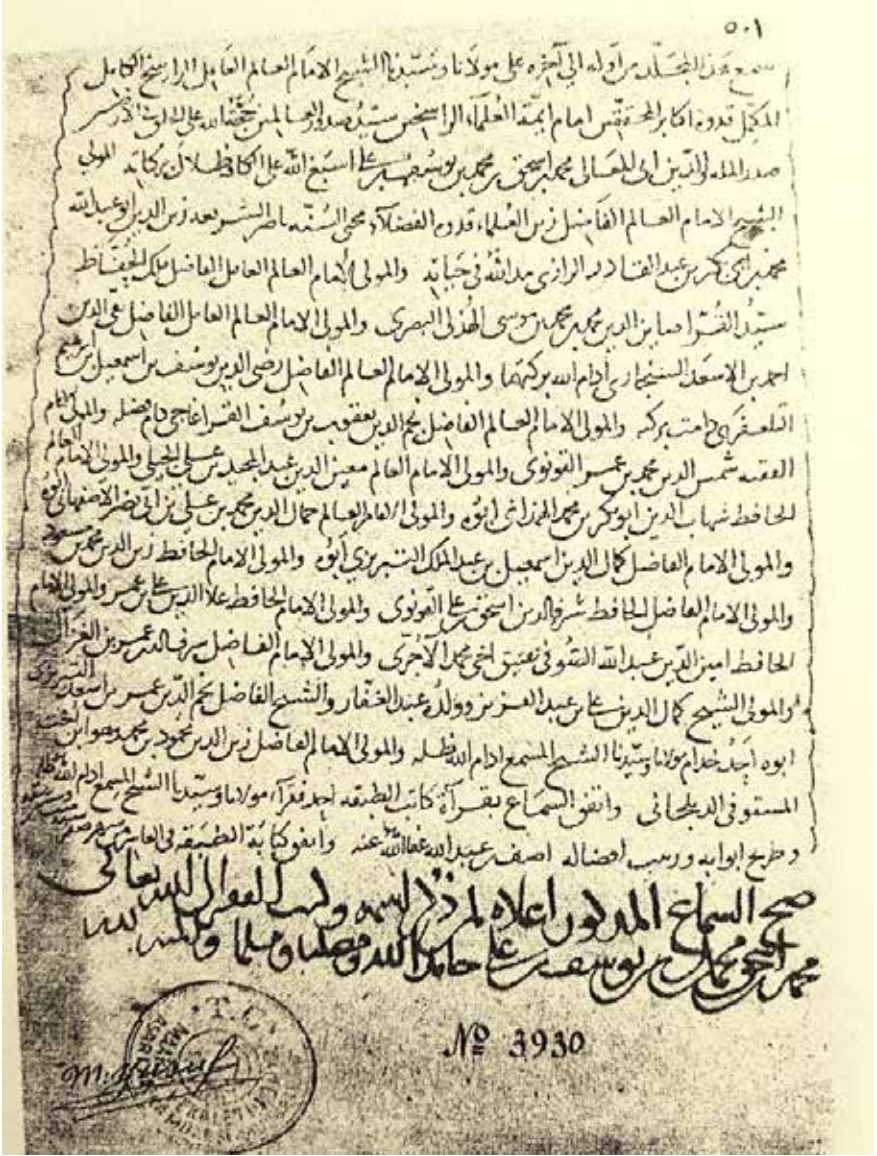 ٥٠١
سمع هذا المجلد من أوله إلى آخره على مولانا وسيدنا الشيخ الامام العالم العامل الراسخ الكامل
المكمل قدوة اكابر المحققين امام ائمة العلماء الراسخين سيد صدور العالمين حجة الله على
صدر الملة والدين ابى المعالى محمد بن اسحق بن محمد بن يوسف بن على اسبغ الله على الكافة ظلال بركاته المولى
الشيخ الامام العالم الفاضل زين العلماء قدوة الفضلاء محى السنة ناصر الشريعة زين الدين ابو عبد الله
محمد بن ابى بكر بن عبد القادر الرازى مد الله فى حياته والمولى الامام العالم العامل الفاضل ملك الحفاظ
سيد القراء صاين الدين محمد بن محمد بن موسى الهذلى البصرى والمولى الامام العالم العامل الفاضل تقى الدين
احمد بن الاسعد ادام الله بركتهما والمولى الامام العالم الفاضل رضى الدين يوسف بن اسمعيل بن ابرهيم
دامت بركته والمولى الامام العالم الفاضل نجم الدين يعقوب بن يوسف دام فضله والمولى الامام
الفقيه شمس الدين محمد بن عمر القونوى والمولى الامام العالم معين الدين عبد المجيد بن على الجيلى والمولى الامام العالم
الحافظ شهاب الدين ابو بكر بن محمد ابوه والمولى الامام العالم جمال الدين محمد بن على بن ابى نصر الاصفهانى ابوه
والمولى الامام الفاضل كمال الدين اسمعيل بن عبد الملك التبريزى ابوه والمولى الامام الحافظ زين الدين محمد بن مسعود
والمولى الامام الفاضل الحافظ شرف الدين اسحق بن على القونوى والمولى الامام الحافظ علا الدين على بن عمر والمولى الامام
الحافظ امين الدين عبد الله عتيق اخى محمد والمولى الامام الفاضل شرف الدين عمر بن
والمولى الشيخ كمال الدين على بن عبد العزيز وولده عبد الغفار والشيخ الفاضل نجم الدين عمر بن اسعد التبريزى
ابوه احد خدام مولانا وسيدنا الشيخ المسمع ادام الله ظله والمولى الامام الفاضل زين الدين محمود بن محمد وهو ابن اخت
المستوفى واتفق السماع بقراءة كاتب الطبقة احمد فقراء مولانا وسيدنا الشيخ المسمع ادام الله ظله
افضاله اصغر عبيد الله عفا الله عنه واتفق كتابة الطبقة فى العاشر من شهر صفر
صح السماع المذكور اعلاه لمن ذكر اسمه وكتب الفقير الى الله تعالى
محمد بن اسحق بن محمد بن يوسف بن على حامدا لله ومصليا ومسلما
T.C.
Nº 3930